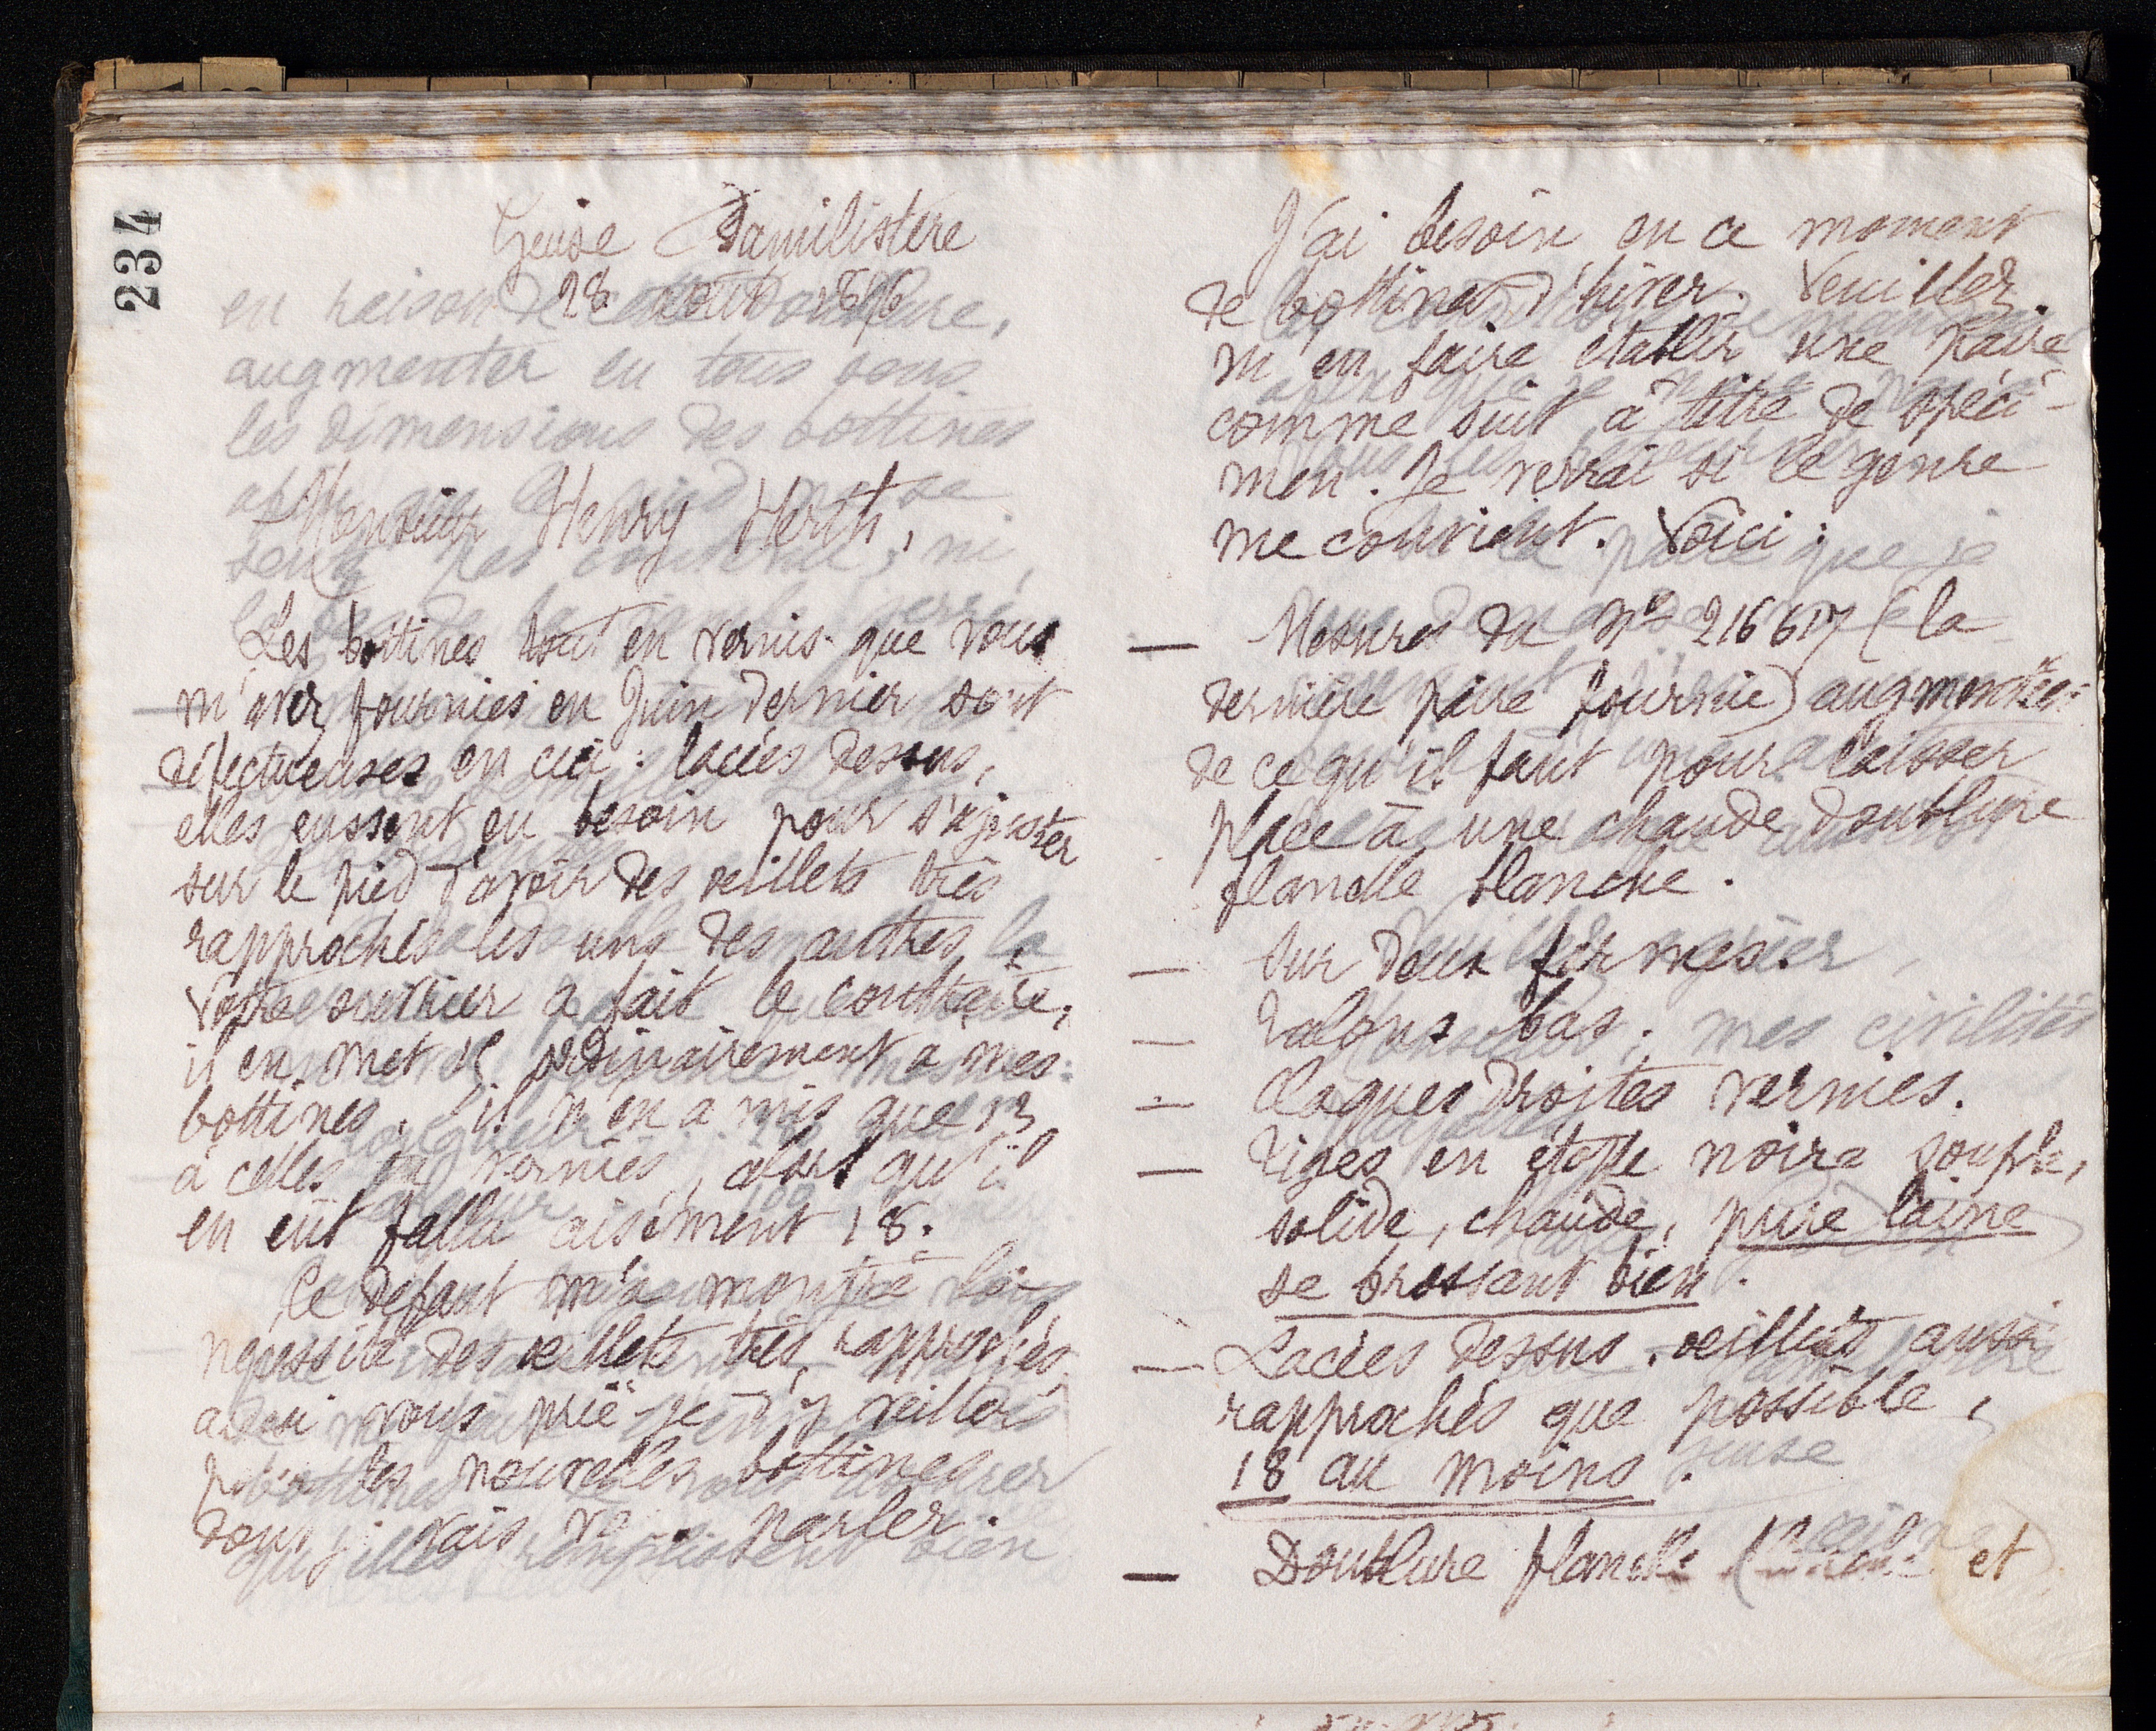 234
Guise Familistère
28 août 1896
Monsieur Henry Herth,
Les bottines tout en vernis que vous
m'avez fournies en Juin dernier sont
défectueuses en ceci : lacées dessus,
elles eussent eu besoin pour s'ajuster
sur le pied d'avoir des œillets très
rapprochés les uns des autres,
Votre ouvrier a fait le contraire,
il en met ordinairement à mes
bottines. il n'en a mis que 13
à celles en vernies, alors qu'il
en eût fallu aisément 18.
Ce défaut m'a montré la
nécessité des œillets très rapprochés,
aussi vous prié-je d'y veiller
pour les nouvelles bottines
dont je vais vs parler.
J'ai besoin en ce moment
de bottines d'hiver. Veuillez
m'en faire établir une paire
comme suit à titre de spéci-
men. Je verrai si le genre
me convient. Voici :
— Mesures du No 216617 (la
dernière paire fournie) augmentées
de ce qu'il faut pour laisser
place à une chaude doublure
flanelle blanche.
— Sur deux formes.
— Talons bas.
— Claques droites vernies.
— Tiges en étoffe noire souple,
solide, chaude, pure laine
se brossant bien.
— Lacées dessus. œillets aussi
rapprochés que possible,
18 au moins.
— Doublure flanelle et